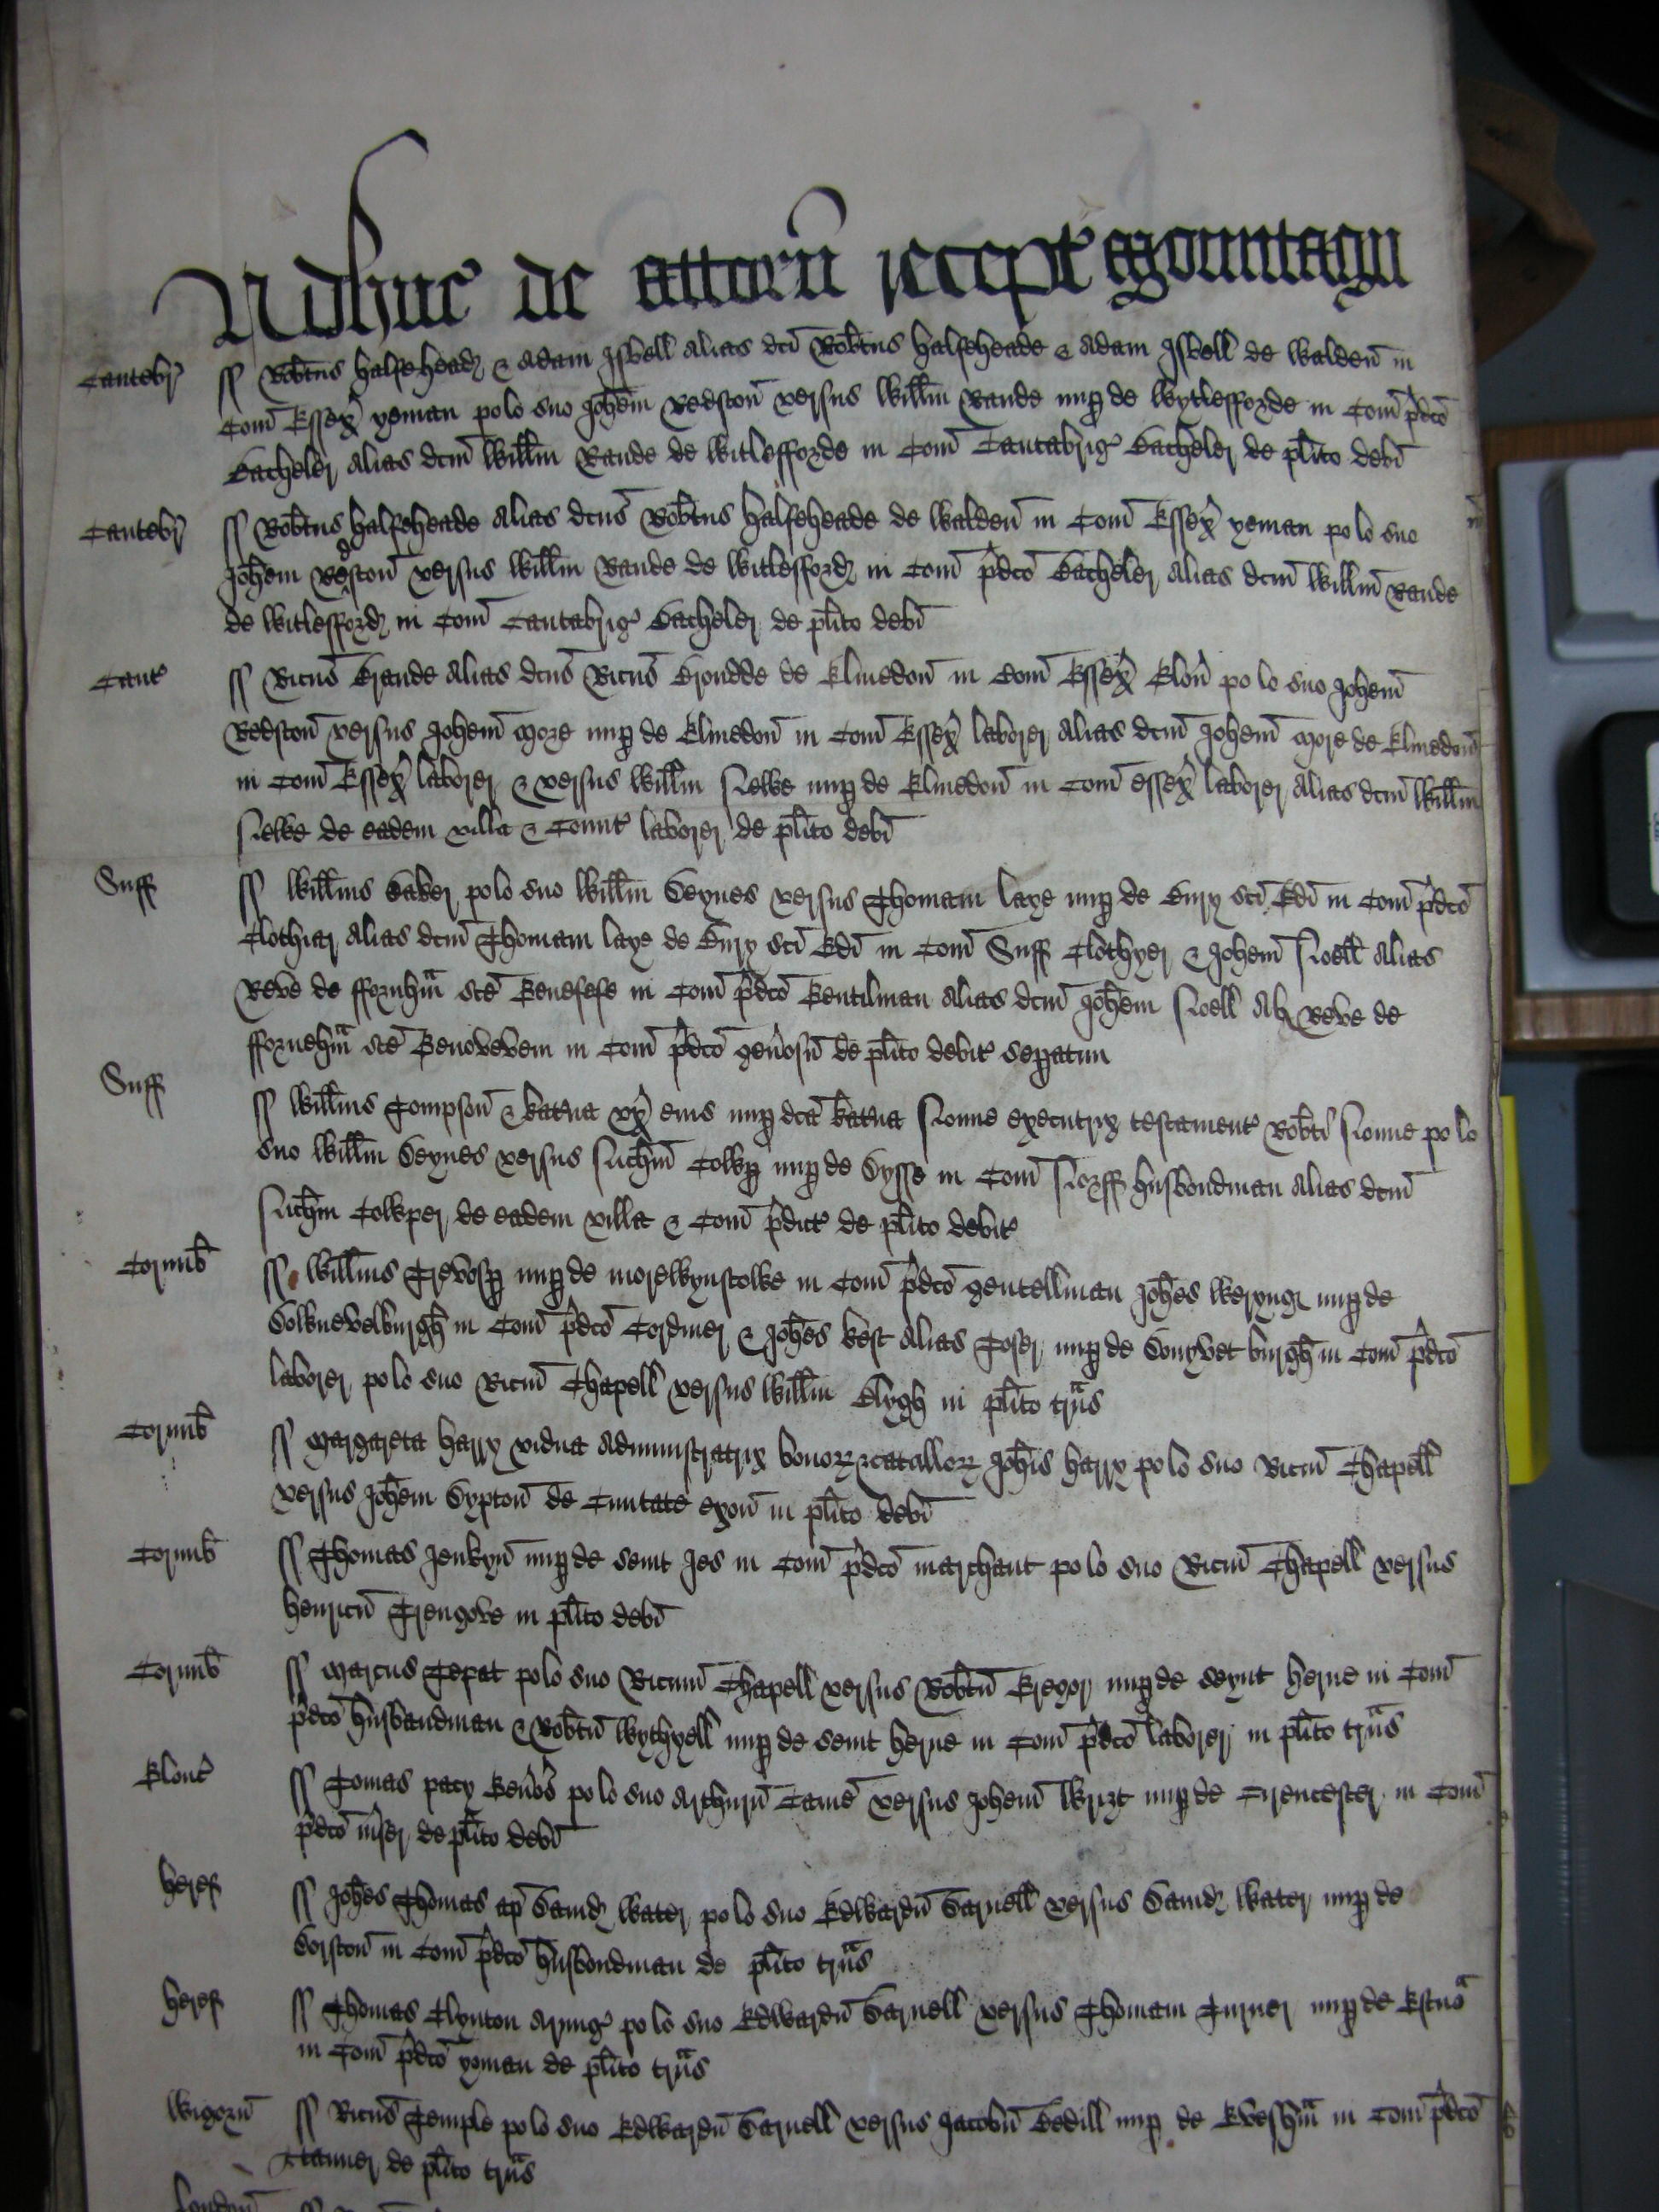 Adhuc de attorn recept Mountagu
Cantebr ss Robtus halfehead & Adam Isbell alias dci Robtus halfeheade & Adam Isbell de Walden in
Com Essex yeman po lo suo Johem Redston versus Willm Rande nup de Wytlefforde in Com pdco
Bacheler alias dcm Willm Rande de Witlefforde in Com Cantabrig Bacheler de plito debi
Cantebr ss Robtus halfeheade alias dcus Robtus halfeheade de Walden in Com Essex yeman po lo suo
Johem Redston versus Willm Rande de Witlefford in Com pdco Bacheler alias dcm Willm Rande
de Witlefford in Com Cantabrig Bacheler de plito debi
Cant ss Ricus Brande alias dcus Ricus Brondde de Elmedon in Com Essex po lo suo Johem
Redston versus Johem More nup de Elmedon in Com Essex laborer alias dcm Johem More de Elmedon
in Com Essex laborer & versus Willm Newe nup de Elmedon in Com Essex laborer alias dcm Willm
Newe de eadem villa & Comit laborer de plito debi
Suff ss Willms Baker po lo suo Willm Seynes versus Thomam Laye nup de Bury sci Edi in Com pdco
Clothiar alias dcm Thomam Laye de Bury sci Edi in Com Suff Clothyer & Johem Noell alias
Reve de ffornhm sce Genefefe in Com pdco Gentilman alias dcm Johem Noell als Reve de
ffornehm sce Genovevem in Com pdco generosu de plito debit sepatim
Suff ss Willms Tompson & katina ux eius nup dca katina Nonne executrix testament Robti Nonne po lo
suo Willm Seynes versus Nichm Cowp nup de Dysse in Com Norff husbondman alias dcm
Nichm Cowper de eadem villa & Com pdict de plito debit
Cornub ss Willms Trevosp nup de morewynstowe in Com pdco gentellman Johes Weryng nup de
in Com pdco Cordiner & Johes kest alias Toser nup de in Com pdco
laborer po lo suo Ricm Chapell versus Willm Clygh in plito trns
Cornub ss Margareta harry vidua administratrix bonor & catallor Johis harry po lo suo Ricm Chapell
versus Johem Sypton de Civitate exon in plito debi
Cornub ss Thomas Jenkyn nup de seint Jes in Com pdco marchant po lo suo Ricm Chapell versus
henricu Trengove in plito debi
Cornub ss Marcus po lo suo Ricum Chapell versus Robtu Gregor nup de seynt herne in Com
pdco husbandman & Robtu Wythyell nup de seint herne in Com pdco laborer in plito trns
Glouc ss Tomas pacy Gen'os po lo suo Arthuru Tame versus Johem Wrizt nup de Cirencester in Com
pdco de plito debi
heref ss Johes Thomas ap David Water po lo suo Edwardu Darnell versus David Water nup de
Dorston in Com pdco husbondman de plito trns
heref ss Thomas Clynton Armig po lo suo Edwardu Darnell versus Thomam Turner nup de Estno
in Com pdco yoman de plito trns
Wigorn ss Ricus Temple po lo suo Edwardu Darnell versus Jacobu Bedill nup de Eveshm in Com pdco
Tanner de plito trns
London ss